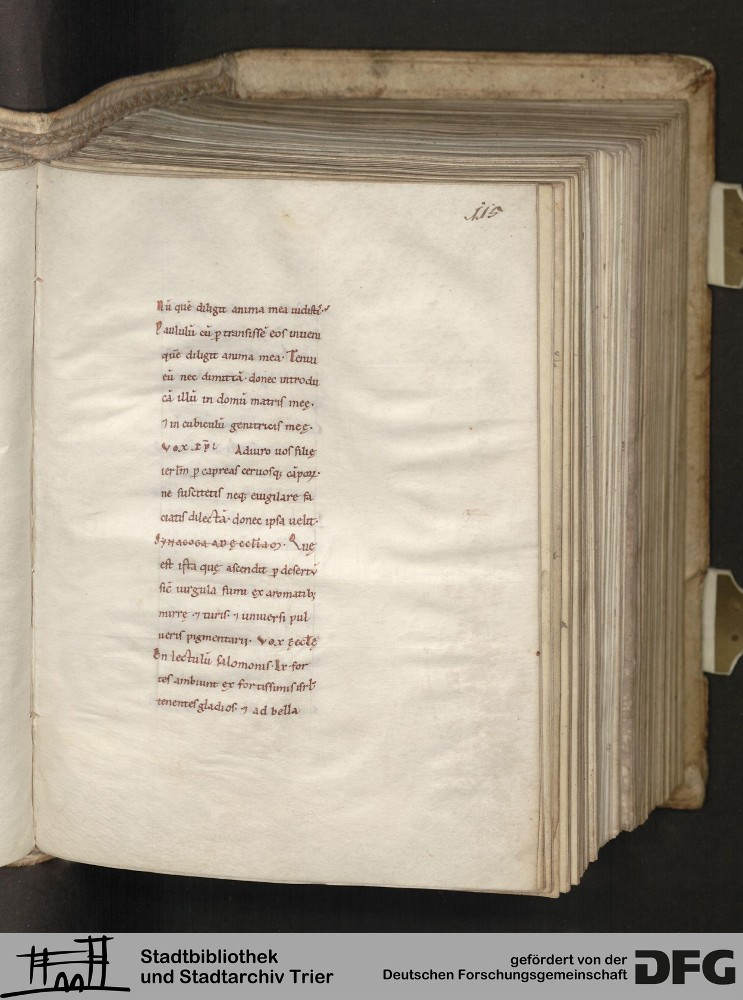 115
Nū quē diligit anima mea uidistis
Paululū cū ptransissē eos inueni
quē diligit anima mea. Tenui
eū nec dimittā. donec introdu
cā illū in domū matris meę.
⁊ in cubiculū genitricis meę.
vox xp̄i Adiuro uos filię
ierl̄m p capreas ceruosq; cāpoꝝ.
ne suscitetis neq; euigilare fa
ciatis dilectā. donec ipsa uelit.
Synagoga ad ęccl̄iam. Quę
est ista quę ascendit p desertū
sic̄ uirgula fumi ex aromatib;
mirrę. ⁊ turis. ⁊ uniuersi pul
ueris pigmentarii. vox ęccl̄ę
En lectulū salomonis. lx for
tes ambiunt ex fortissimis isrl̄
tenentes gladios. ⁊ ad bella
Stadtbibliothek
und Stadtarchiv Trier
gefördert von der
Deutschen Forschungsgemeinschaft
DFG